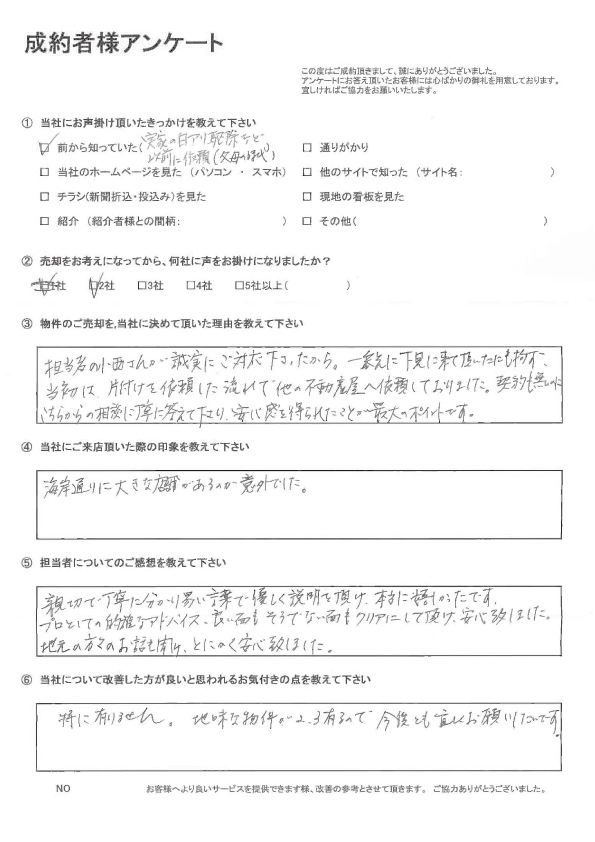 成約者様アンケート
この度はご成約頂きまして、誠にありがとうございました。
アンケートにお答え頂いたお客様には心ばかりの御礼を用意しております。
宜しければご協力をお願いいたします。
① 当社にお声掛け頂いたきっかけを教えて下さい
前から知っていた(実家の白アリ駆除など
以前に依頼(父母の時代)
□ 通りがかり
□ 当社のホームページを見た (パソコン ・ スマホ) □ 他のサイトで知った (サイト名: )
□ チラシ(新聞折込・投込み)を見た □ 現地の看板を見た
□ 紹介 (紹介者様との間柄: ) □ その他( )
② 売却をお考えになってから、何社に声をお掛けになりましたか?
1社 2社 □3社 □4社 □5社以上( )
③ 物件のご売却を,当社に決めて頂いた理由を教えて下さい
担当者の小西さんが誠実にご対応下さったから。一番先に下見に来て頂いたにも拘ず、
当初は、片付けを依頼した流れで他の不動産屋へ依頼しておりました。契約も無いのに
こちらからの相談に丁寧に答えて下さり、安心感を得られたことが最大のポイントです。
④ 当社にご来店頂いた際の印象を教えて下さい
海岸通りに大きな店舗があるのが意外でした。
⑤ 担当者についてのご感想を教えて下さい
親切で丁寧に分かり易い言葉で優しく説明を頂け、本当に嬉しかったです。
プロとしての的確なアドバイス、良い面もそうでない面もクリアにして頂け、安心致しました。
地元の方々のお話も聞け、とにかく安心致しました。
⑥ 当社について改善した方が良いと思われるお気付きの点を教えて下さい
特に有りません。 地味な物件が2、3有るので今後とも宜しくお願いしたいです。
NO お客様へより良いサービスを提供できます様、改善の参考とさせて頂きます。 ご協力ありがとうございました。